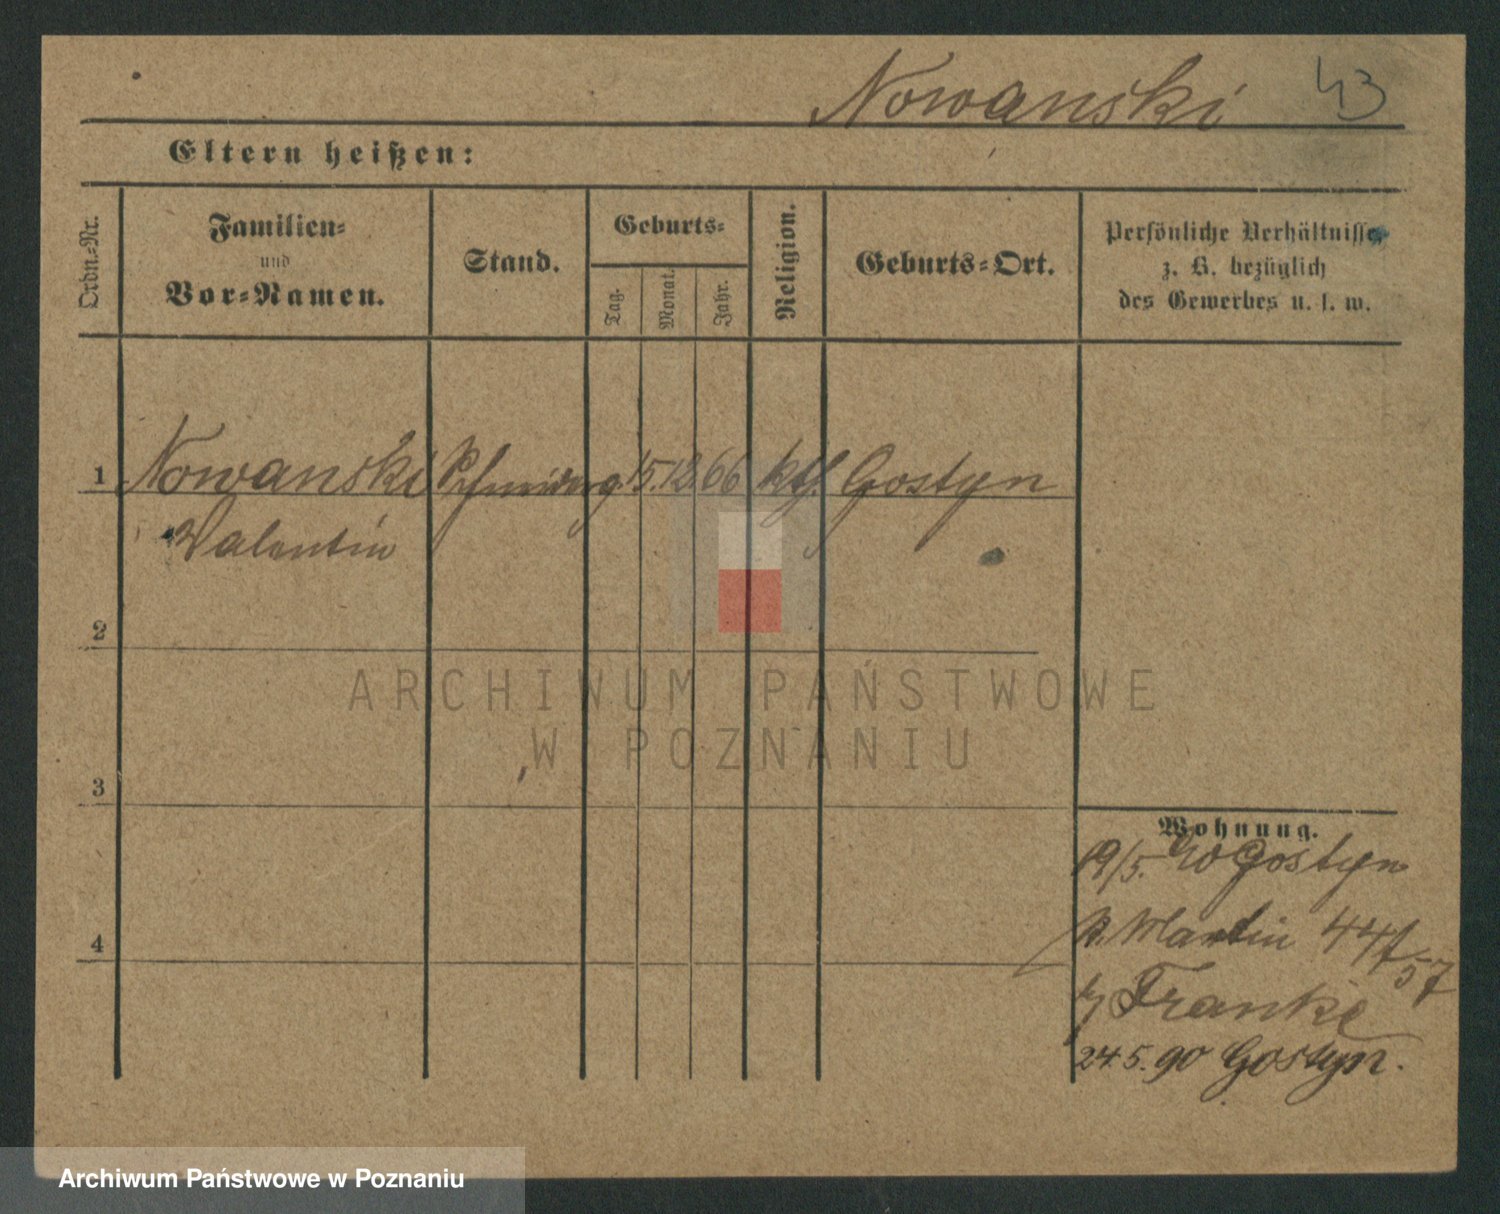 Nowanski 43
Eltern heißen:
Ordn.-Nr.
Familien-
und
Vor-Namen.
Stand.
Geburts-
Tag.
Monat.
Jahr.
Religion.
Geburts-Ort.
Persönliche Verhältnisse,
z. B. bezüglich
des Gewerbes u. s. w.
1 Nowanski Schmiedeg. 15. 12. 66 kth. Gostyn
Valentin
2
3
4
Wohnung.
19/5. Gostyn
St. Martin 44
57
Franke
24.5.90 Gostyn.
ARCHIWUM PAŃSTWOWE
W POZNANIU
Archiwum Państwowe w Poznaniu